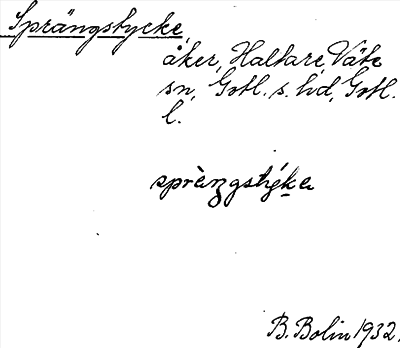 Sprängstycke,
åker, Haltare, Väte
sn, Gotl. s. hd, Gotl.
l.
spràngstýka
B. Bolin 1932.